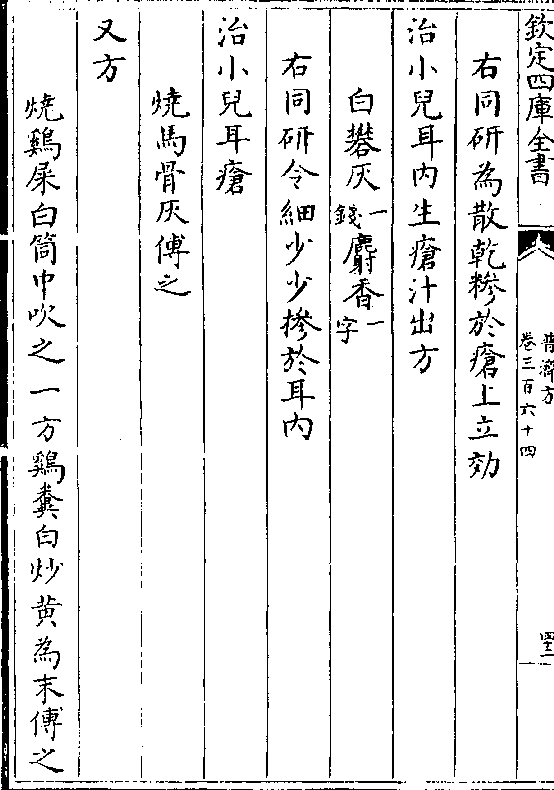 欽定四庫全書
普濟方
卷三百六十四
右同研為散乾糝於瘡上立効
治小兒耳内生瘡汁出方
白礬灰一錢麝香一字
右同研令細少少摻於耳内
治小兒耳瘡
燒馬骨灰傅之
又方
燒鷄屎白筒中吹之一方鷄糞白炒黄為末傅之